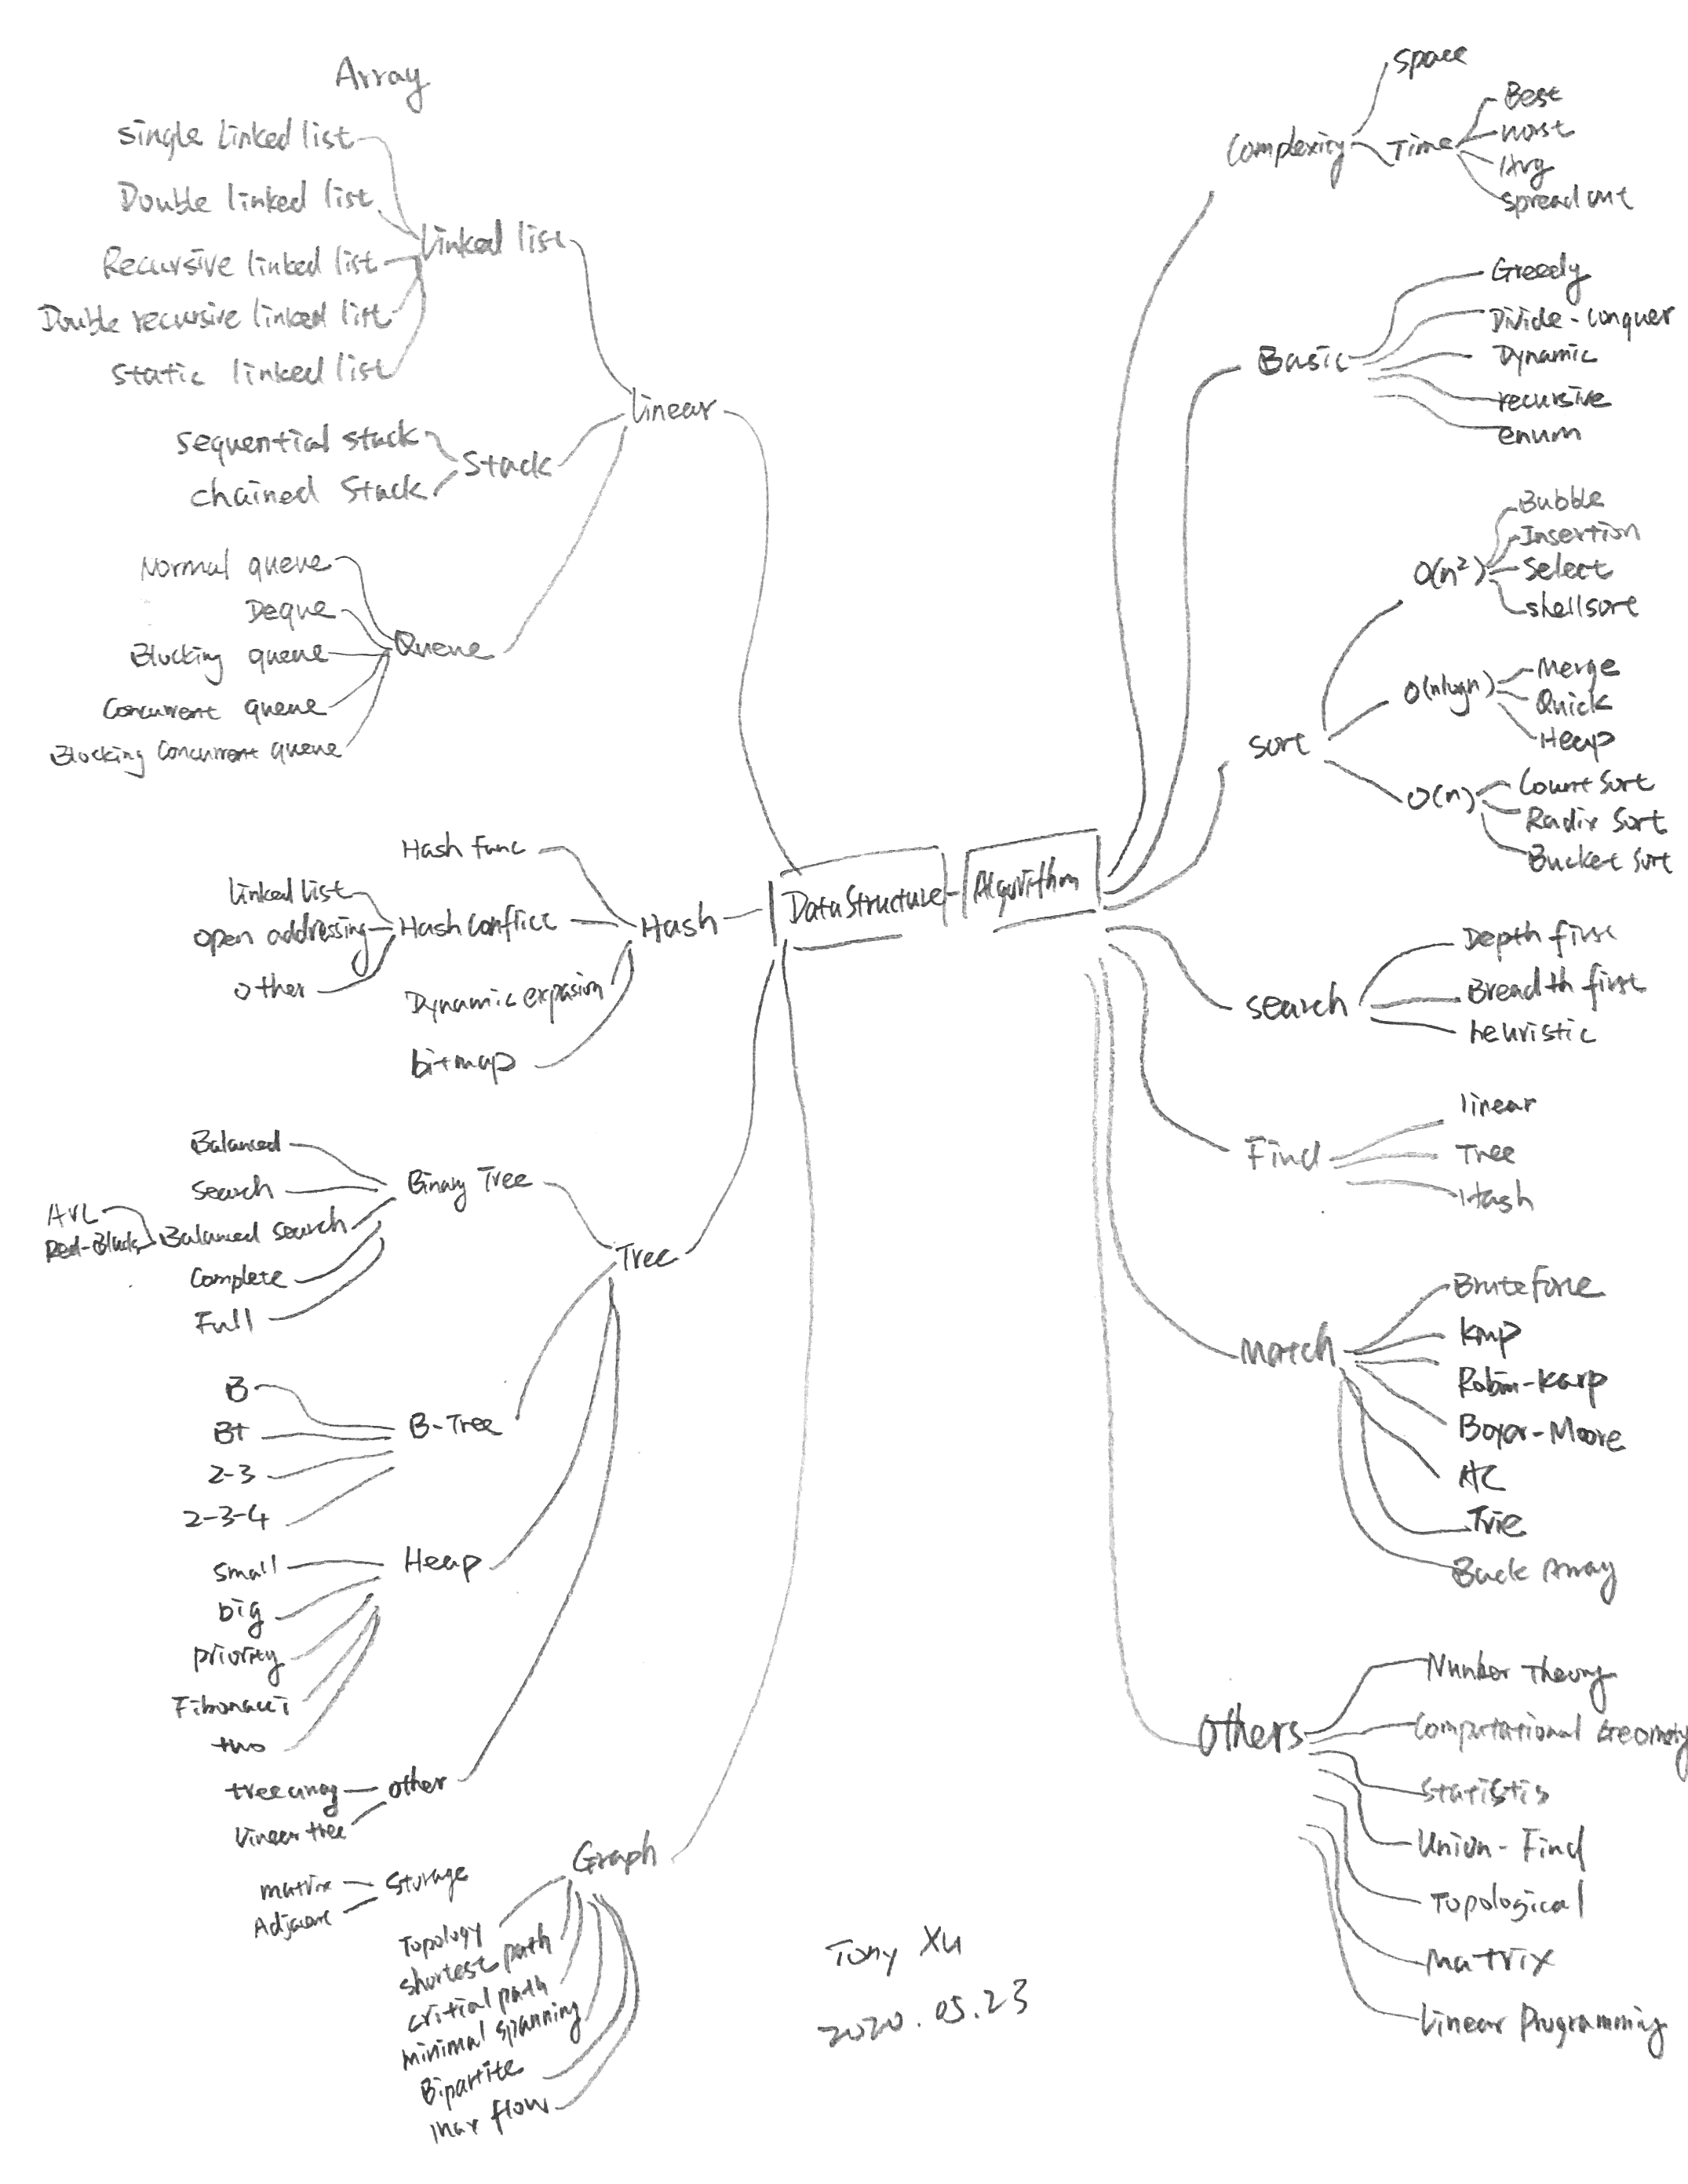 Array
single linked list
Double linked list
Recursive linked list
Double recursive linked list
static linked list
linked list
linear
sequential stack
chained stack
Stack
Normal queue
Deque
Blocking queue
Concurrent queue
Blocking Concurrent queue
Queue
Hash func
linked list
open addressing
other
Hash conflict
Dynamic expasion
bitmap
Hash
Data Structure - Algorithm
Balanced
Search
AVL
Red-Black
Balanced search
Complete
Full
Binary Tree
Tree
B
B+
2-3
2-3-4
B-Tree
small
big
priority
Fibonacci
two
Heap
tree array
Linear tree
other
Graph
matrix
Storage
Topology
shortest path
critial path
minimal spanning
Bipartite
max flow
Tony Xu
2020.05.23
Complexity
space
Time
Best
worst
Avg
spread out
Basic
Greedy
Divide-conquer
Dynamic
recursive
enum
sort
O(n²)
Bubble
Insertion
Select
shellsort
O(nlogn)
Merge
Quick
Heap
O(n)
Count sort
Radix sort
Bucket sort
search
Depth first
Breadth first
heuristic
Find
linear
Tree
Hash
Match
Brute force
kmp
Robin-Karp
Boyer-Moore
AC
Trie
Back Array
Others
Number Theory
Computational Geometry
Statistis
Union-Find
Topological
Matrix
Linear Programming